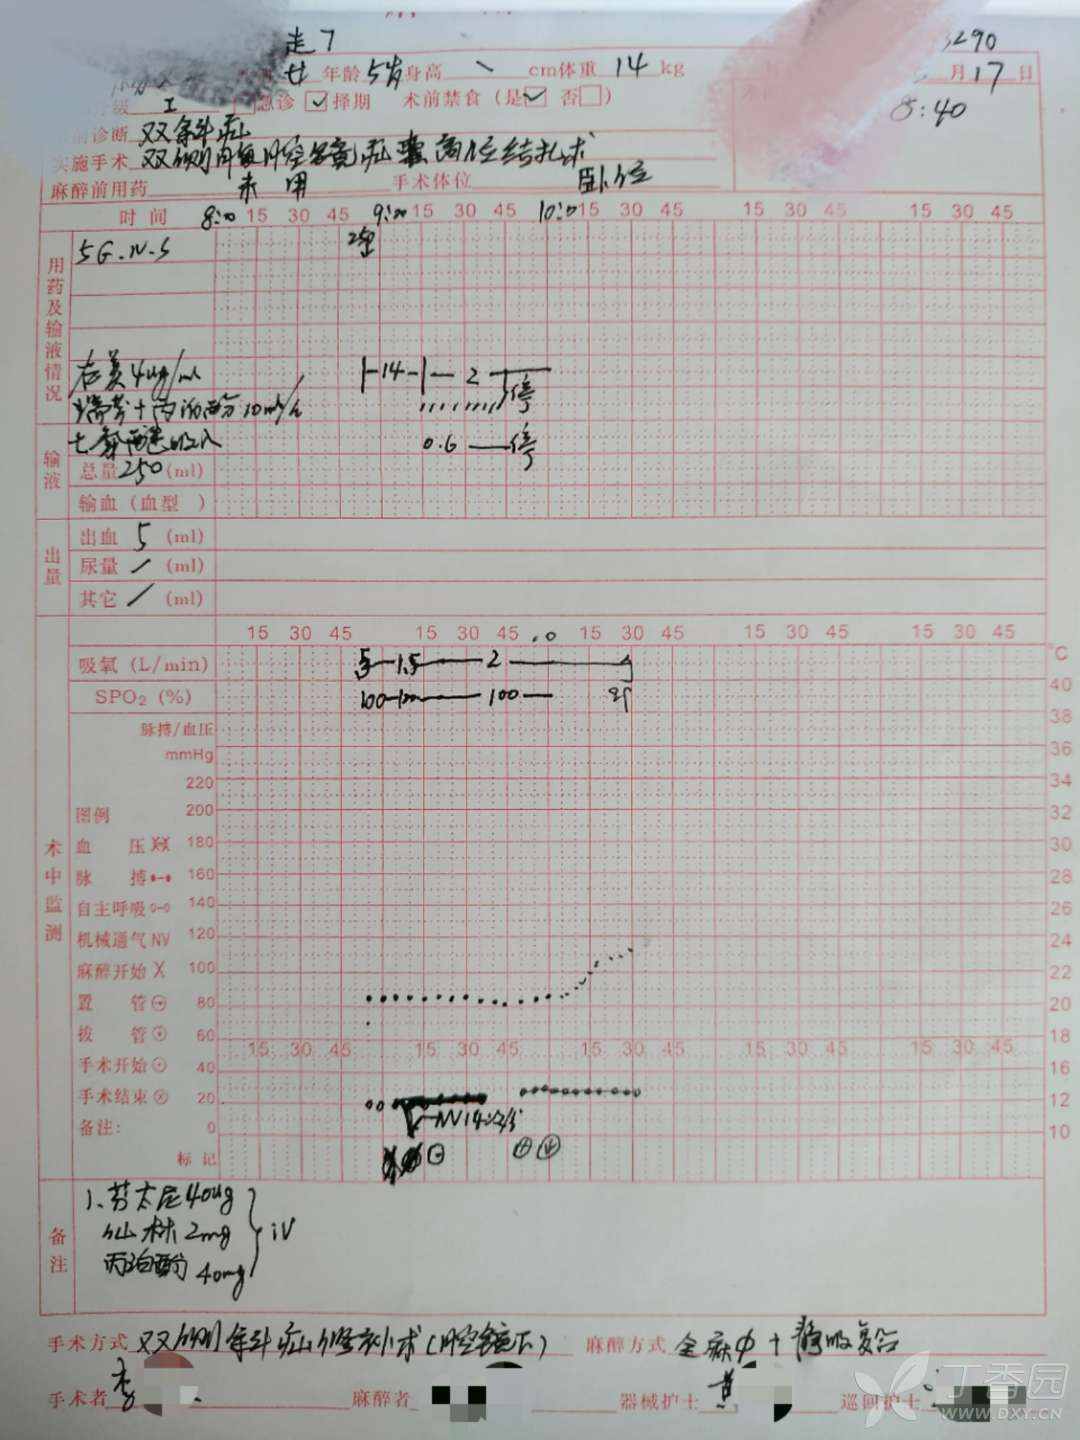 走7
3290
女 年龄 5岁 身高 cm体重 14 kg
月17日
I 急诊 ☑择期 术前禁食（是☑ 否□）
8:40
前诊断 双斜疝
实施手术 双侧腹腔镜疝囊高位结扎术
麻醉前用药 未用 手术体位 卧位
时间 8:00 15 30 45 9:00 15 30 45 10:0 15 30 45 15 30 45 15 30 45
用药及输液情况
5G.N.S
右美4ug/ml 14 2 停
瑞芬+丙泊酚10ml/h
七氟醚吸入 0.6 停
输液
总量250(ml)
输血（血型 ）
出量
出血 5 (ml)
尿量 / (ml)
其它 / (ml)
15 30 45 15 30 45 15 30 45 15 30 45 15 30 45
吸氧 (L/min) 5 1.5 2
°C
SPO₂ (%) 100 100 100
40
38
脉搏/血压
mmHg
36
220 34
图例 200 32
术中监测
血 压 180 30
脉 搏 160 28
自主呼吸 140 26
机械通气 NV 120 24
麻醉开始 X 100 22
置 管 80 20
拔 管 60 18
15 30 45 15 30 45 15 30 45 15 30 45 15 30 45
手术开始 40 16
手术结束 20 12
备注: 0 10
NV14次/分
标记
备注
1、芬太尼40ug
仙林2mg iv
丙泊酚40mg
手术方式 双侧斜疝修补术(腔镜下) 麻醉方式 全麻中+静吸复合
手术者 李 麻醉者 器械护士 黄 巡回护士
丁香园
WWW.DXY.CN